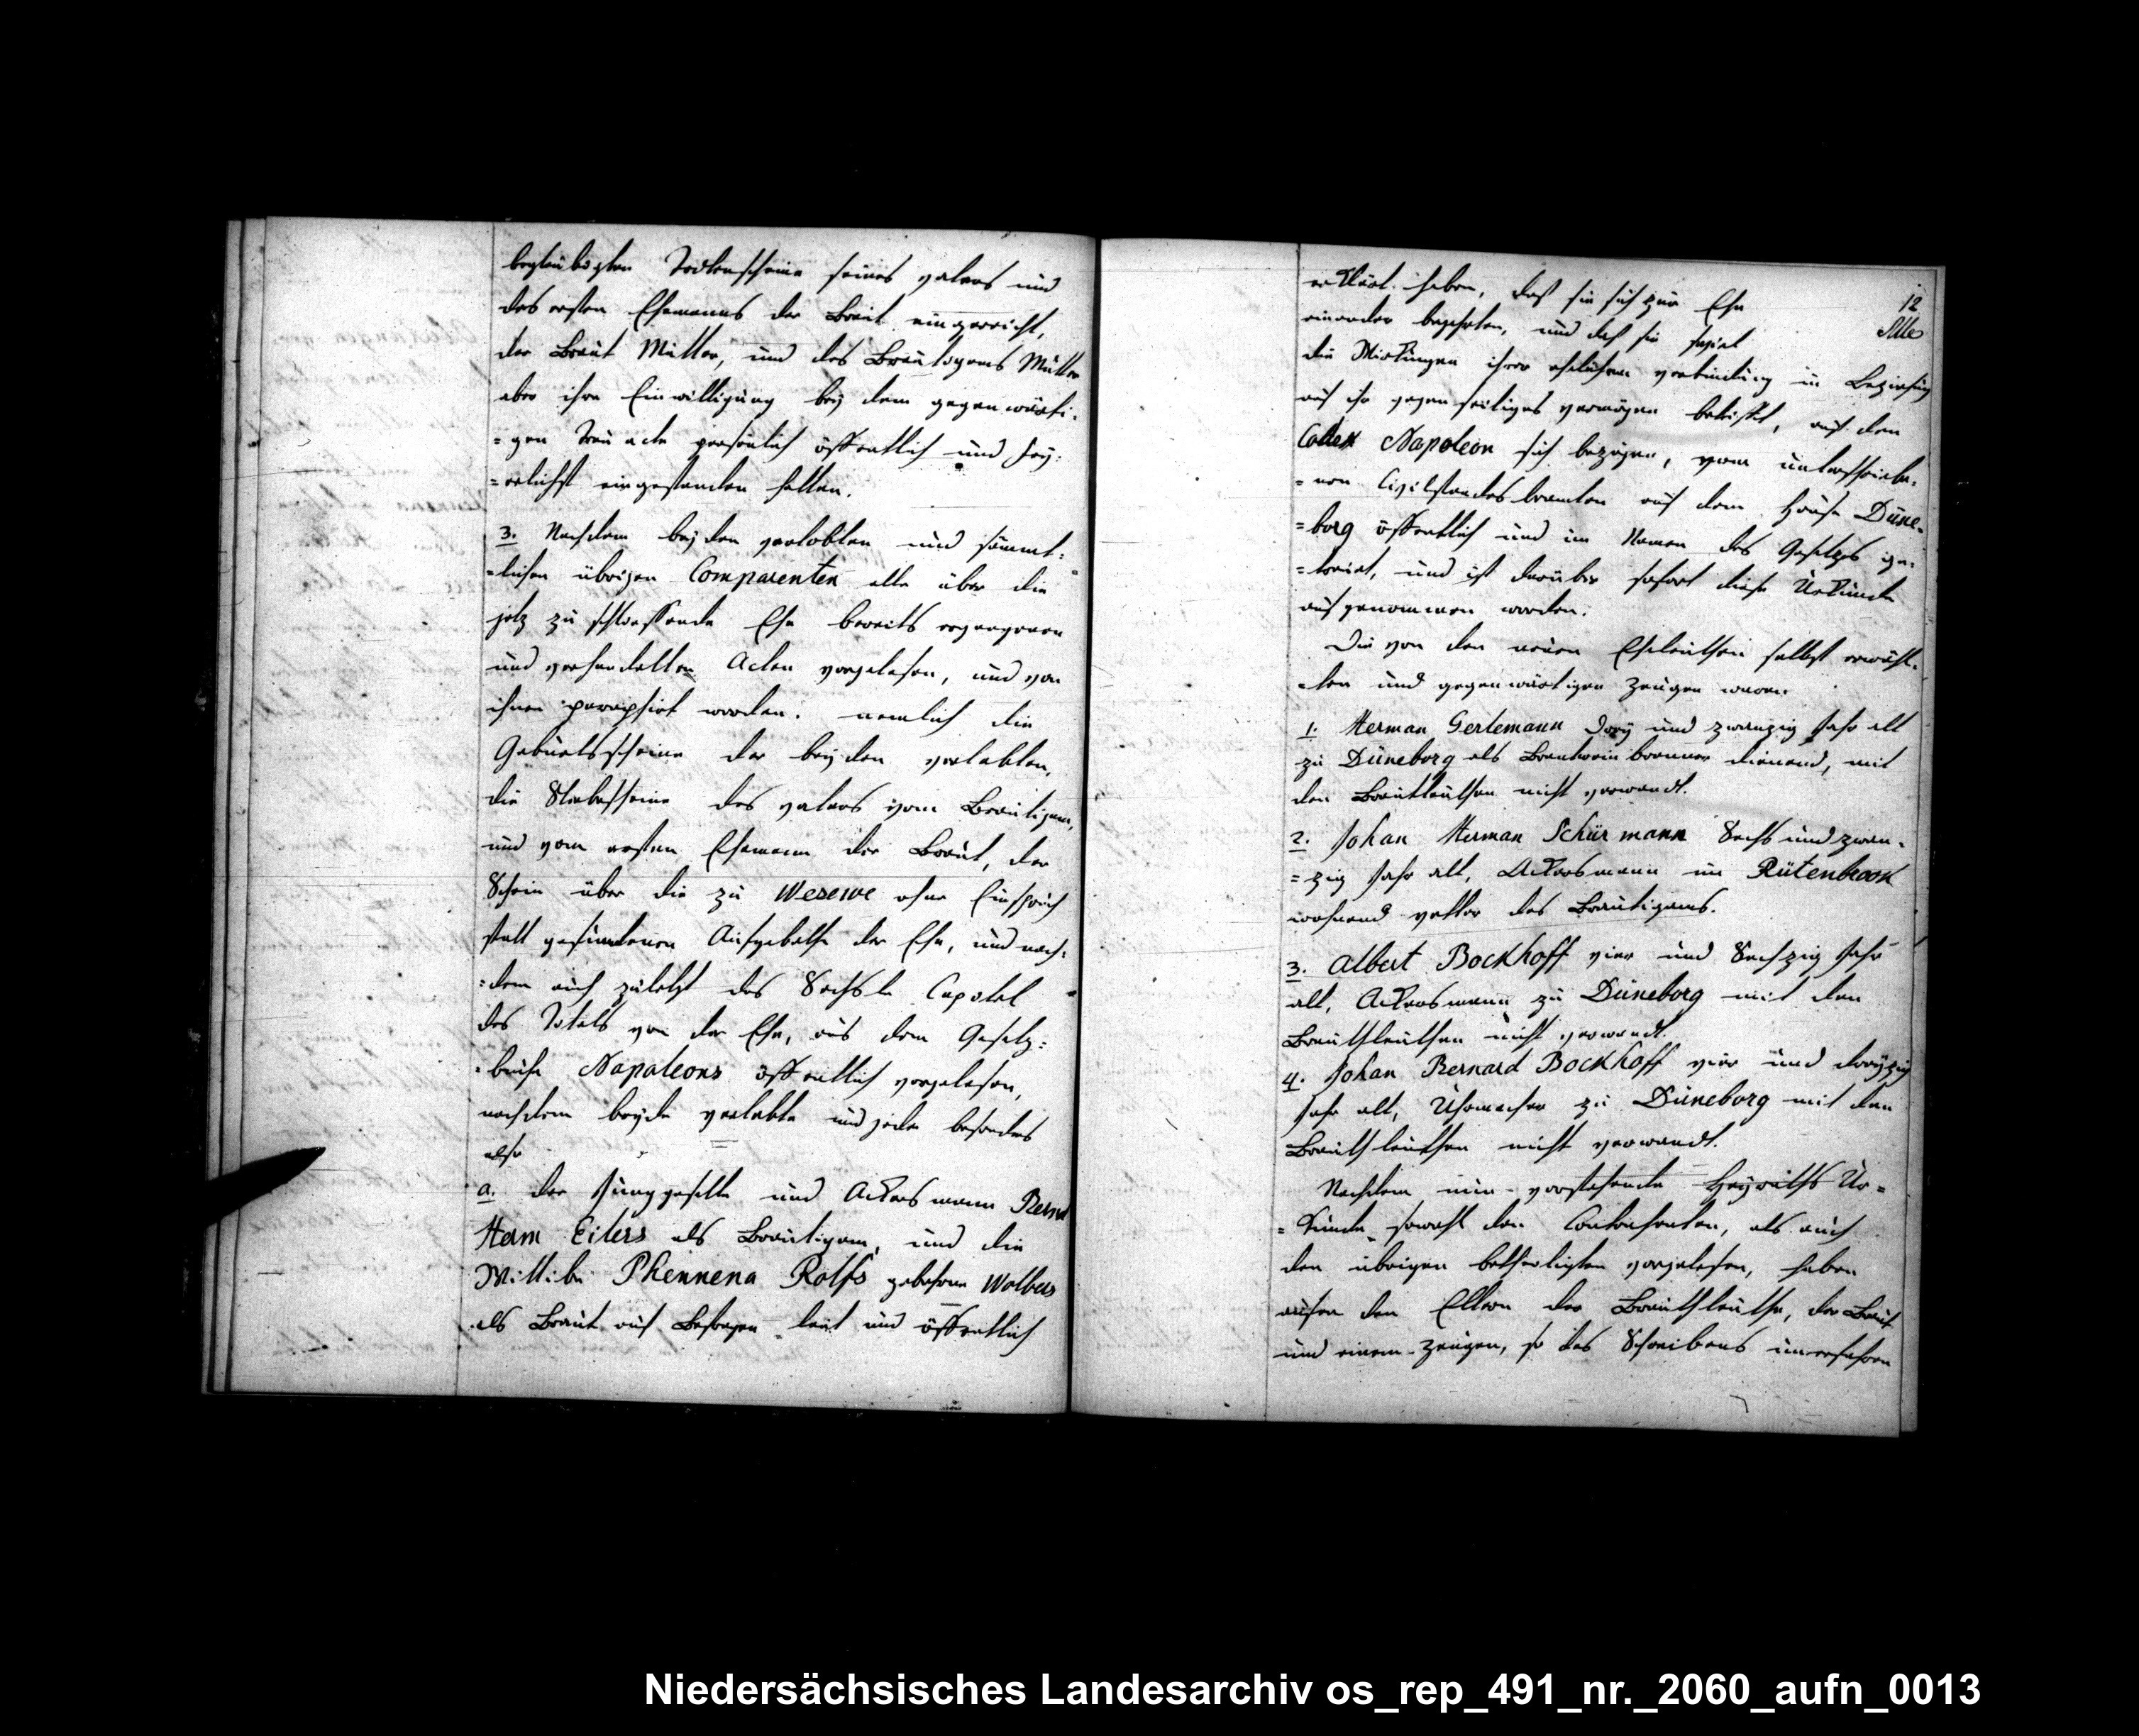 beglaubigten Todtenscheine seines vaters und
des ersten Ehemanns der Braut eingereicht,
der Braut Mutter, und des Bräutigams Mutter
aber ihre Einwilligung bey dem gegenwärti-
=gen Trau acte persönlich öffentlich und fey-
=erlichst eingestanden hatten.
3. Nachdem beyden verlobten und sämmt-
=lichen übrigen Comparenten alle über die
jetz zu schliessende Ehe bereits ergangenen
und verhandelten Acten vorgelesen, und von
ihnen paraphirt worden. nemlich die
Geburtsscheine der beyden verlobten,
die Sterbescheine des vaters vom Bräutigam,
und vom ersten Ehemann der Braut, der
Schein über die zu Wesewe ohne Einspruch
statt gefundenen Aufgebothe der Ehe, und nach-
=dem auch zuletzt das Sechste Capitel
des Titels von der Ehe, aus dem Gesetz-
=buche Napoleons öffentlich vorgelesen,
nachdem beyde verlobte und jeder besonders
also
a. der Junggeselle und Ackersmann Bernd
Herm Eilers als Bräutigam, und die
Wittibe Phennena Rolfs gebohrne Wolbers
als Braut auf Befragen laut und öffentlich
12
erklärt haben, daß sie sich zur Ehe
Alle
einander begehrten, und daß sie
die Wirkungen ihrer ehelichen verbindung in Beziehung
auf ihr gegenseitiges vermögen betrifft, auf den
Codex Napoleon sich bezögen, vom unterschriebe-
=nen Civilstandesbeamten auf dem Hause Düne-
=borg öffentlich und im Namen des Gesetzes ge-
=trauet, und ist darüber sofort diese Urkunde
aufgenommen worden.
Die von den neuen Eheleuthen selbst erwähl-
=ten und gegenwärtigen Zeugen waren
1. Herman Gertemann Drey und zwanzig Jahr alt
zu Düneborg als Brantwein brenner dienend, mit
den Brautleuthen nicht verwandt.
2. Johan Herman Schürmann Sechs und zwan-
=zig Jahr alt, Ackersmann im Rütenbrook
wohnend vetter des Bräutigams.
3. Albert Bockhoff vier und Sechzig Jahr
alt, Ackersmann zu Düneborg mit den
Brauthleuthen nicht verwandt.
4. Johan Bernard Bockhoff vier und dreyzig
Jahr alt, Uhrmacher zu Düneborg mit den
Brauthleuthen nicht verwandt.
Nachdem nun vorstehende Heyraths Ur=
=kunde sowohl den Contrahenten, als auch
den übrigen betheiligten vorgelesen, haben
außer den Eltern der Brauthleuthe, der Braut
und einem Zeugen, so des Schreibens unerfahren
Niedersächsisches Landesarchiv os_rep_491_nr._2060_aufn_0013